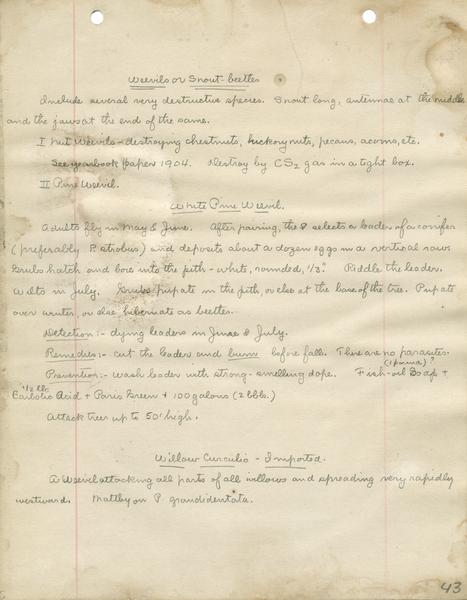 Weevils or Snout-beetles
Include several very destructive species. Snout long, antennae at the middle
and the jaws at the end of the same.
I Nut Weevils - destroying chestnuts, hickory nuts, pecans, acorns, etc.
See yearbook paper 1904. Destroy by CS2 gas in a tight box.
II Pine Weevil.
White Pine Weevil.
Adults fly in May & June. After pairing, the selects a leader of a conifer
(preferably P. strobus) and deposits about a dozen eggs in a vertical row.
Grubs hatch and bore into the pith - white, rounded, 1/3". Riddle the leader.
Wilts in July. Grubs pupate in the pith, or else at the base of the tree. Pupate
over winter, or else hibernate as beetles.
Detection:- dying leaders in June & July.
Remedies:- cut the leader and burn before fall. There are no parasites.
Prevention:- wash leader with strong-smelling dope. Fish-oil Soap +
1/2 lb.
Carbolic Acid + Paris Green + 100 gallons (2 bbls.)
Attack trees up to 50' high.
Willow Curculio - Imported.
A Weevil attacking all parts of all willows and spreading very rapidly
westward. on P. grandidentata.
43